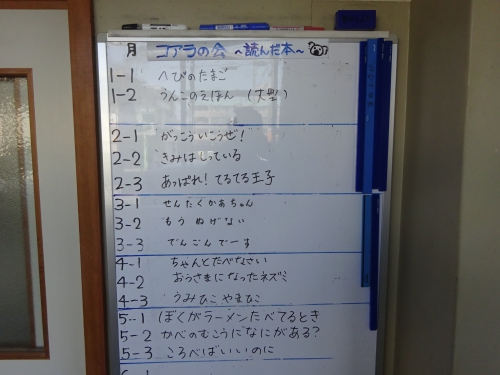 月 コアラの会 ~読んだ本~
1-1 へびのたまご
1-2 うんこのえほん (大型)
2-1 がっこういこうぜ!
2-2 きみはしっている
2-3 あっぱれ!てるてる王子
3-1 せんたくかあちゃん
3-2 もうぬげない
3-3 でんごんでーす
4-1 ちゃんとたべなさい
4-2 おうさまになったネズミ
4-3 うみひこやまひこ
5-1 ぼくがラーメンたべてるとき
5-2 かべのむこうになにがある?
5-3 ころべばいいのに